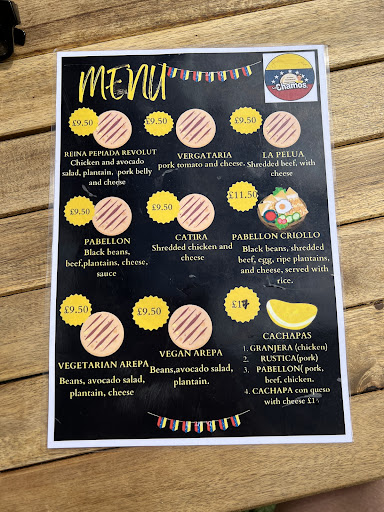 MENU
Chamos
£9.50
£9.50
£9.50
REINA PEPIADA REVOLUT
Chicken and avocado
salad, plantain, pork belly
and cheese
VERGATARIA
pork tomato and cheese.
LA PELUA
Shredded beef, with
cheese
£9.50
£9.50
£11.50
PABELLON
Black beans,
beef,plantains, cheese,
sauce
CATIRA
Shredded chicken and
cheese
PABELLON CRIOLLO
Black beans, shredded
beef, egg, ripe plantains,
and cheese, served with
rice.
£9.50
£9.50
VEGETARIAN AREPA
Beans, avocado salad,
plantain, cheese
VEGAN AREPA
Beans,avocado salad,
plantain.
CACHAPAS
1. GRANJERA (chicken)
2. RUSTICA(pork)
3. PABELLON( pork,
beef, chicken.
4. CACHAPA con queso
with cheese